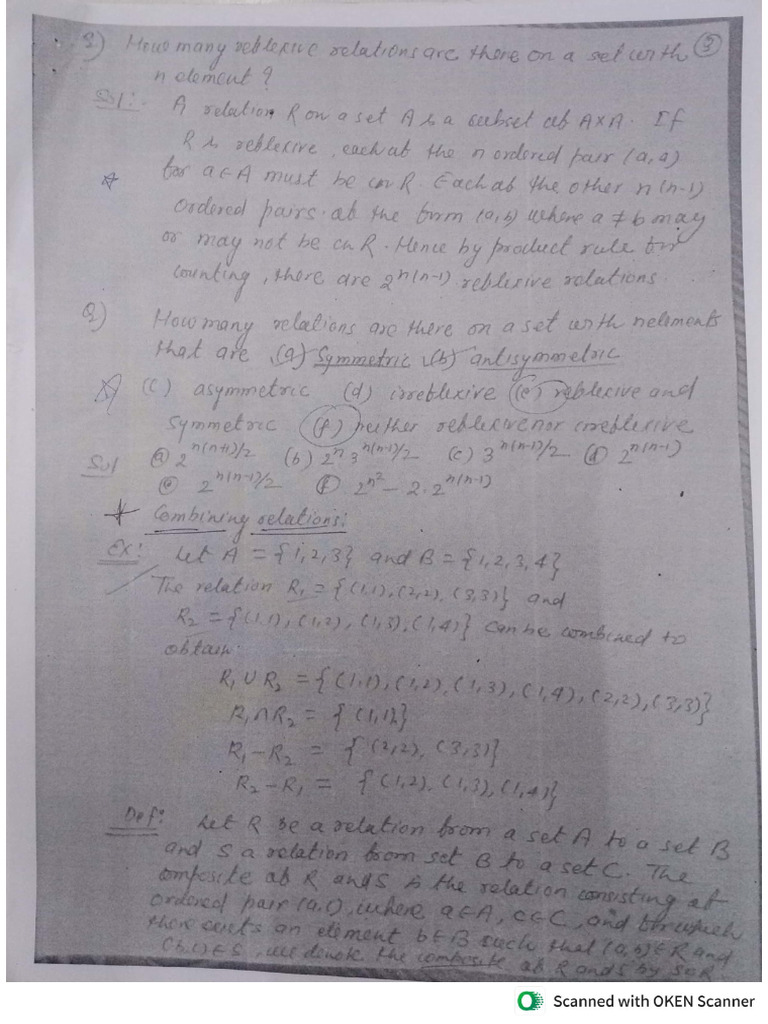 Q) How many reflexive relations are there on a set with 3
n element?
Sol:- A relation R on a set A is a subset of A×A. If
R is reflexive, each of the n ordered pair (a,a)
for a∈A must be in R. Each of the other n(n-1)
ordered pairs of the form (a,b) where a ≠ b may
or may not be in R. Hence by product rule for
counting, there are 2^n(n-1) reflexive relations.
Q) How many relations are there on a set with n elements
that are (a) symmetric (b) antisymmetric
(c) asymmetric (d) irreflexive (e) reflexive and
symmetric (f) neither reflexive nor irreflexive
Sol (a) 2^n(n+1)/2 (b) 2^n 3^n(n-1)/2 (c) 3^n(n-1)/2 (d) 2^n(n-1)
(e) 2^n(n-1)/2 (f) 2^n² - 2.2^n(n-1)
Combining relations:
Ex: Let A = {1,2,3} and B = {1,2,3,4}
The relation R₁ = {(1,1),(2,2),(3,3)} and
R₂ = {(1,1),(1,2),(1,3),(1,4)} can be combined to
obtain:
R₁ ∪ R₂ = {(1,1),(1,2),(1,3),(1,4),(2,2),(3,3)}
R₁ ∩ R₂ = {(1,1)}
R₁ - R₂ = {(2,2),(3,3)}
R₂ - R₁ = {(1,2),(1,3),(1,4)}
Def: Let R be a relation from a set A to a set B
and S a relation from set B to a set C. The
composite of R and S is the relation consisting of
ordered pair (a,c), where a∈A, c∈C, and for which
there exists an element b∈B such that (a,b)∈R and
(b,c)∈S, we denote the composite of R and S by S∘R.
Scanned with OKEN Scanner